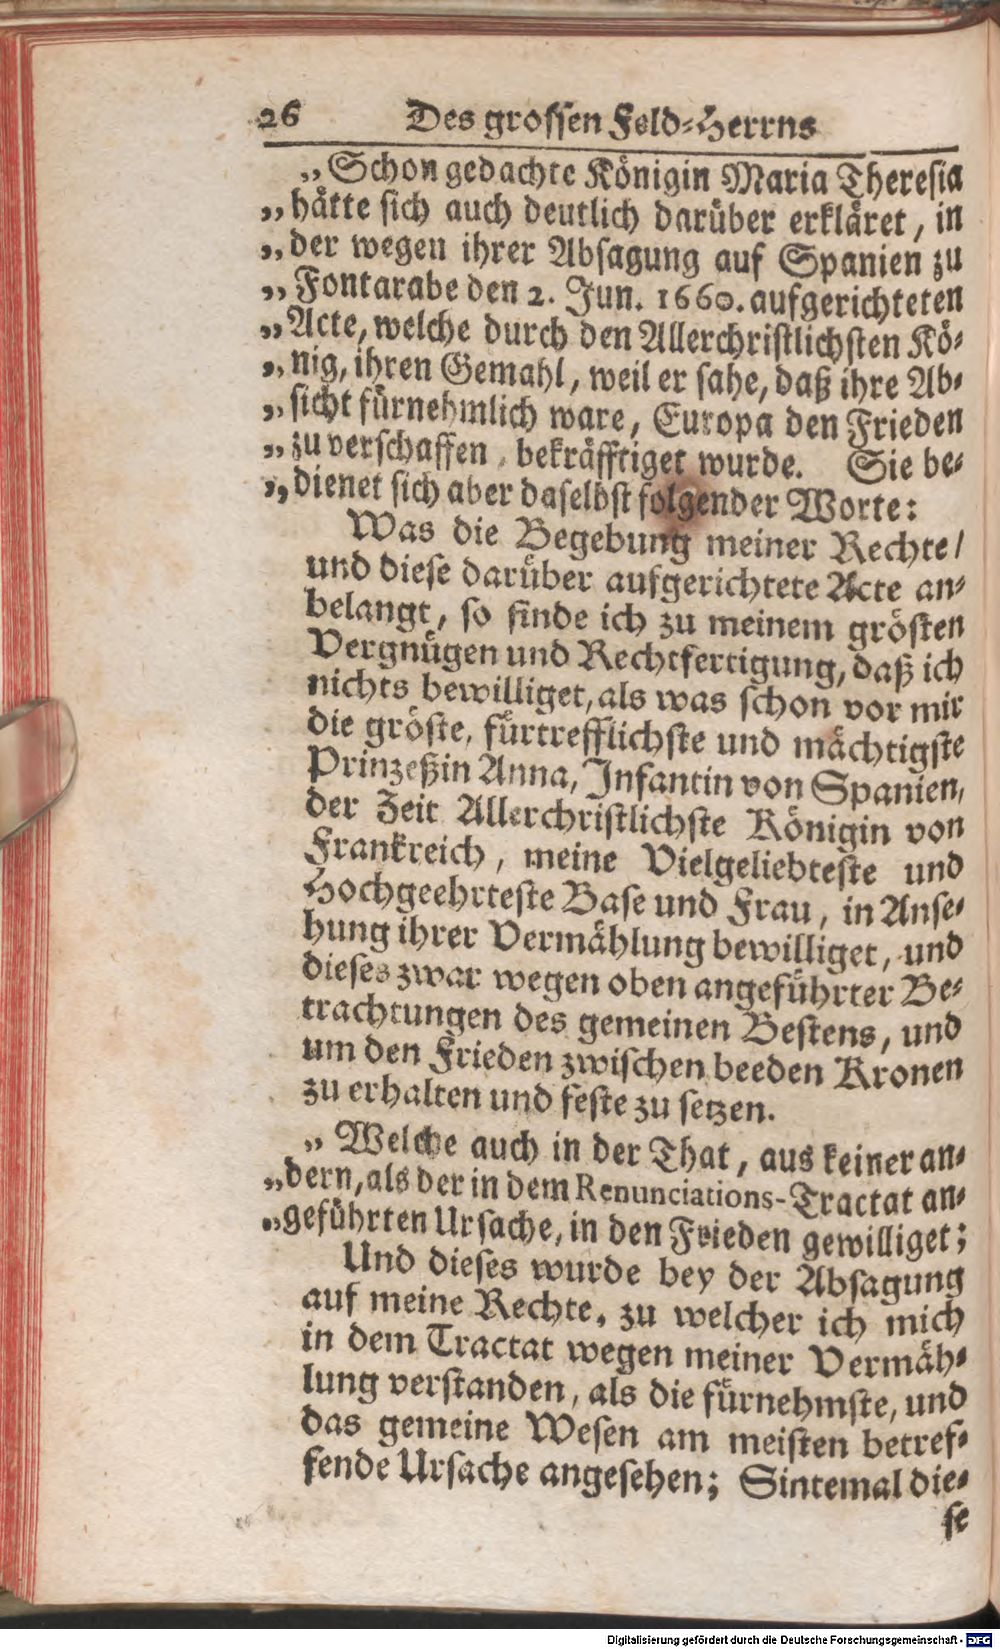 26 Des grossen Feld-Herrns
„ Schon gedachte Königin Maria Theresia
„ hätte sich auch deutlich darüber erkläret, in
„ der wegen ihrer Absagung auf Spanien zu
„ Fontarabe den 2. Jun. 1660. aufgerichteten
„ Acte, welche durch den Allerchristlichsten Kö-
„ nig, ihren Gemahl, weil er sahe, daß ihre Ab-
„ sicht fürnehmlich ware, Europa den Frieden
„ zu verschaffen, bekräfftiget wurde. Sie be-
„ dienet sich aber daselbst folgender Worte:
Was die Begebung meiner Rechte/
und diese darüber aufgerichtete Acte an-
belangt, so finde ich zu meinem grösten
Vergnügen und Rechtfertigung, daß ich
nichts bewilliget, als was schon vor mir
die gröste, fürtrefflichste und mächtigste
Prinzeßin Anna, Infantin von Spanien,
der Zeit Allerchristlichste Königin von
Frankreich, meine Vielgeliebteste und
Hochgeehrteste Base und Frau, in Anse-
hung ihrer Vermählung bewilliget, und
dieses zwar wegen oben angeführter Be-
trachtungen des gemeinen Bestens, und
um den Frieden zwischen beeden Kronen
zu erhalten und feste zu setzen.
„ Welche auch in der That, aus keiner an-
„ dern, als der in dem Renunciations-Tractat an-
„ geführten Ursache, in den Frieden gewilliget;
Und dieses wurde bey der Absagung
auf meine Rechte, zu welcher ich mich
in dem Tractat wegen meiner Vermäh-
lung verstanden, als die fürnehmste, und
das gemeine Wesen am meisten betref-
fende Ursache angesehen; Sintemal die-
se
Digitalisierung gefördert durch die Deutsche Forschungsgemeinschaft - DFG